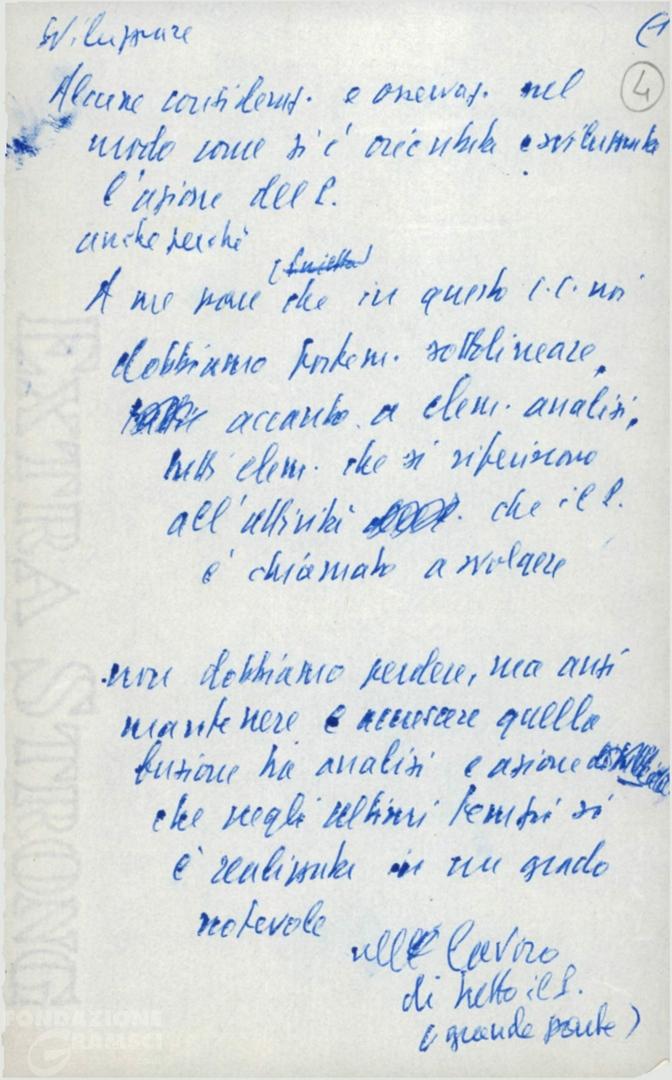 Sviluppare
(1
4
Alcune consideraz. e osservaz. nel
modo come si è orientata e sviluppata
l'azione del P.
anche perché
A me pare che in questo C.C. noi
dobbiamo fortem. sottolineare,
accanto a elem. analisi,
tutti elem. che si riferiscono
all'attività che il P.
è chiamato a svolgere
non dobbiamo perdere, ma anzi
mantenere e accrescere quella
fusione tra analisi e azione
che negli ultimi tempi si
è realizzata in un grado
notevole
nel lavoro
di tutto il P.
(grande parte)
EXTRA STRONG
FONDAZIONE
GRAMSCI